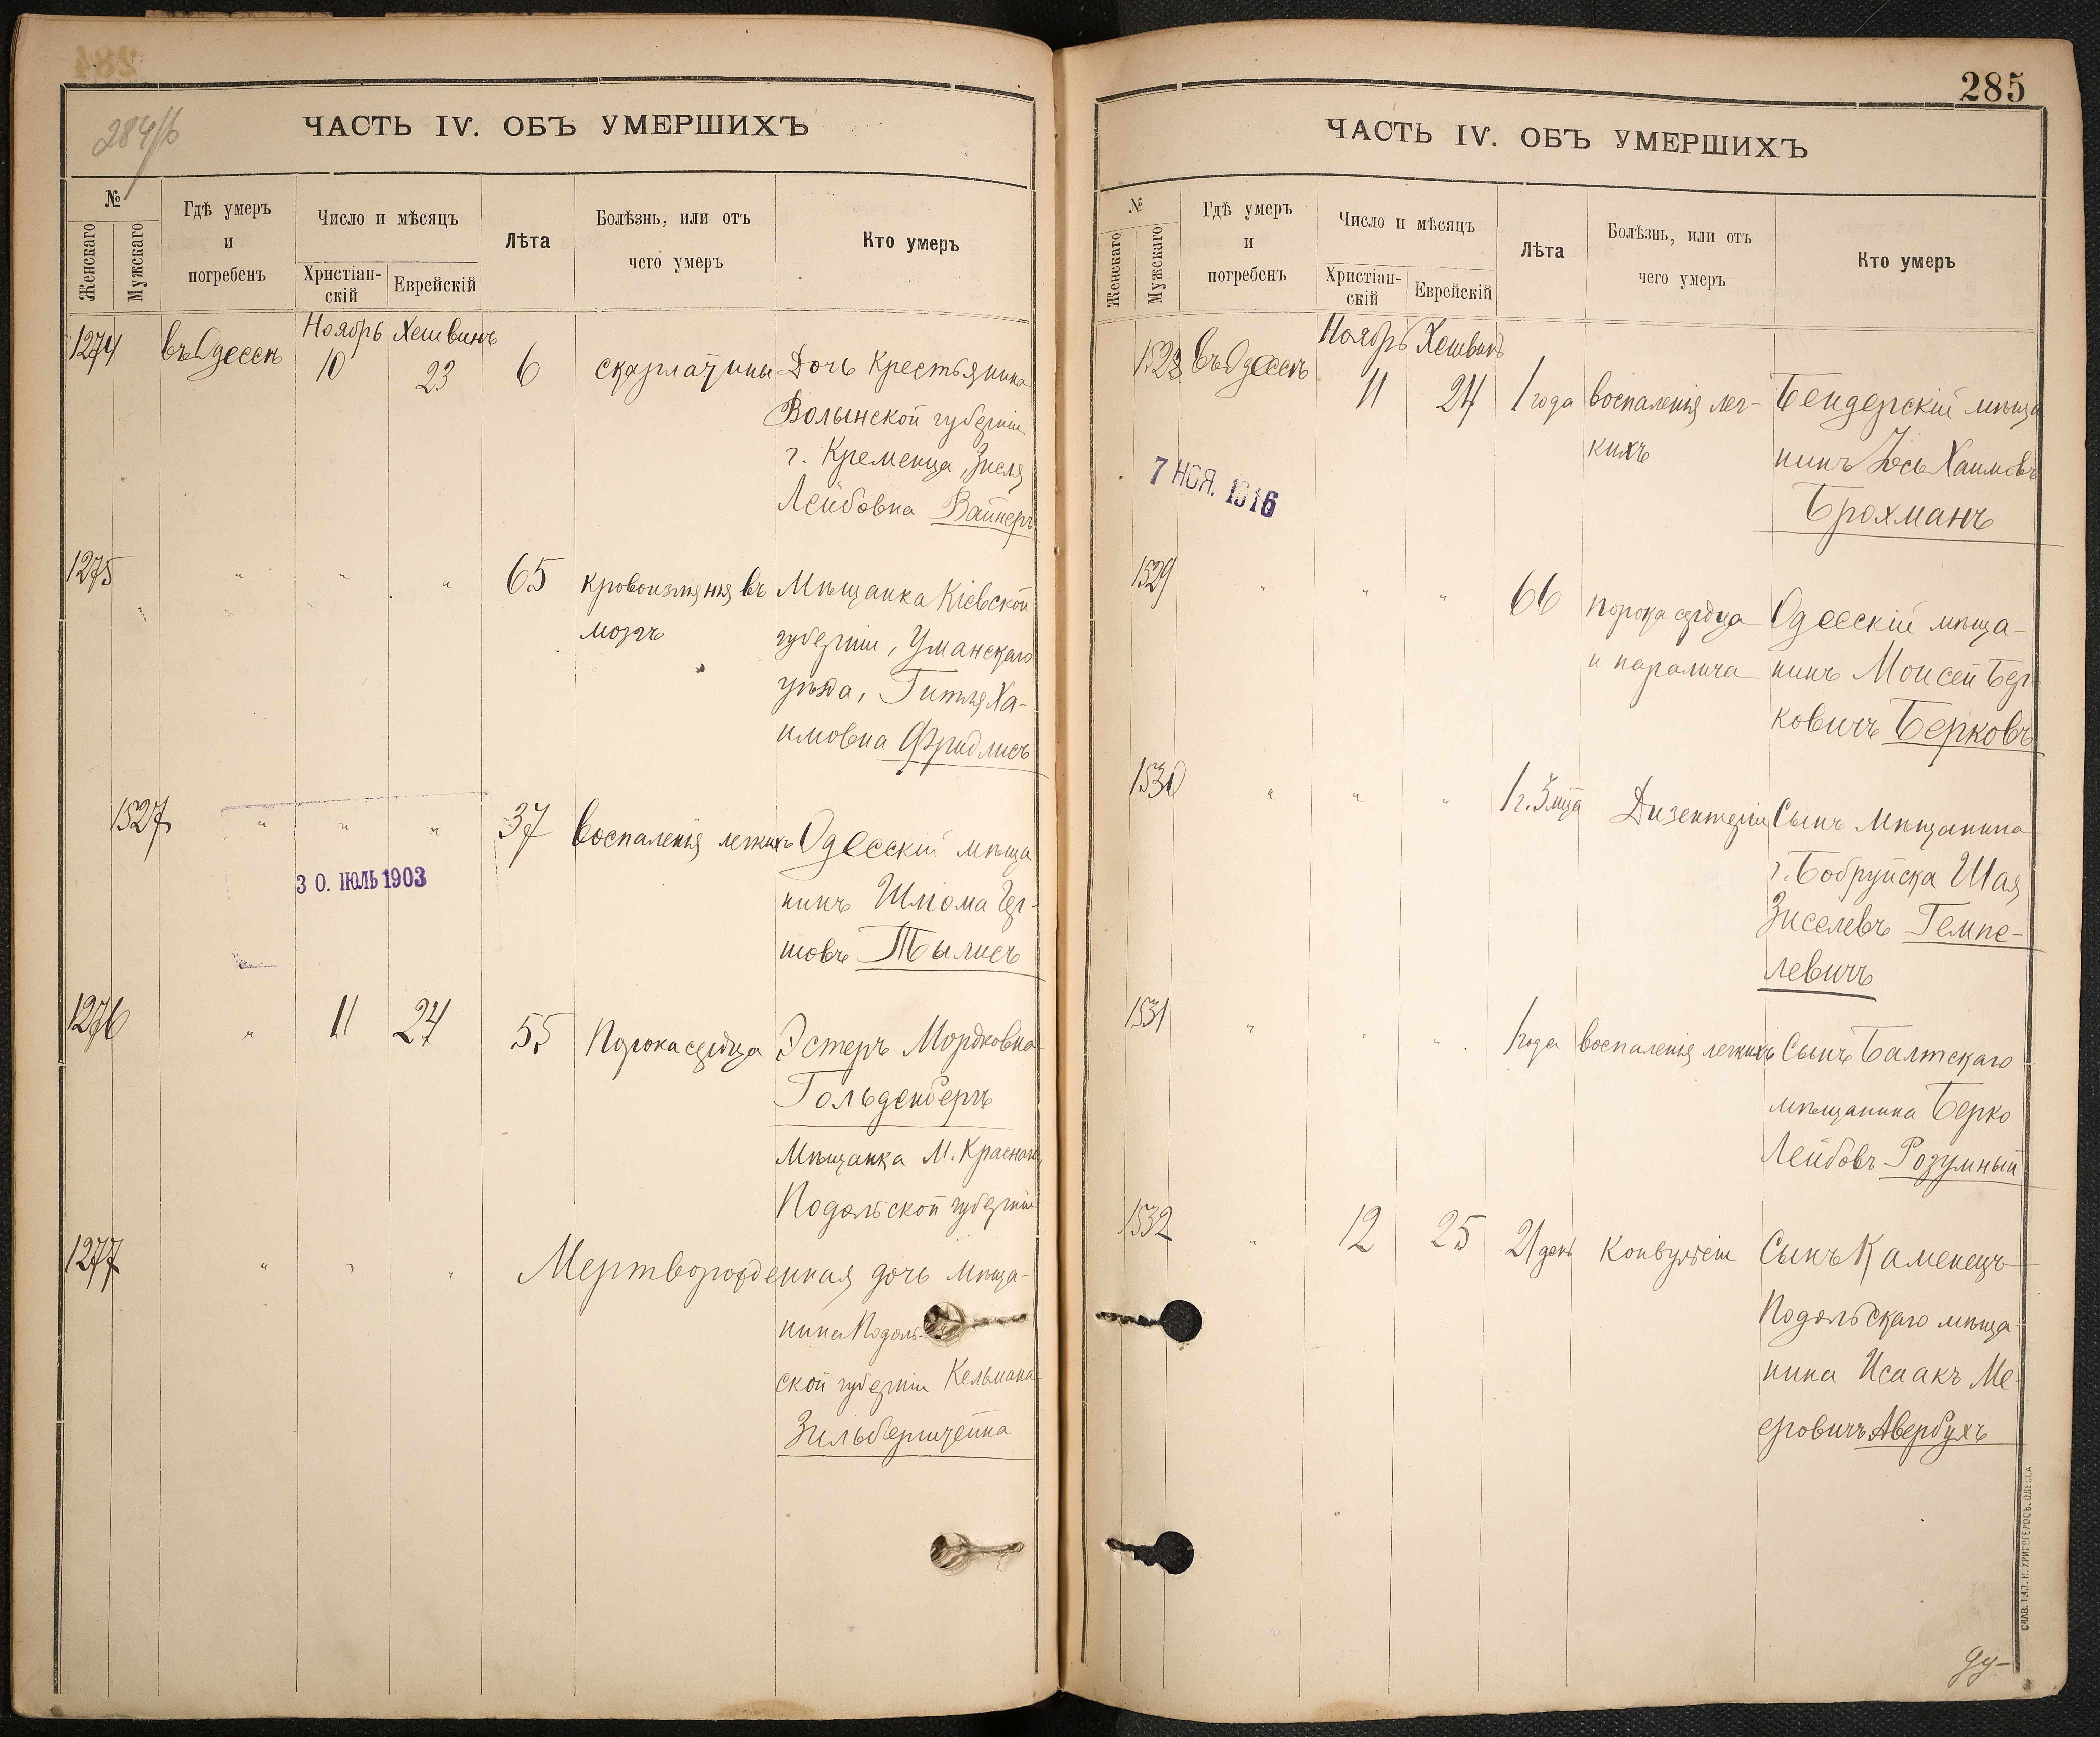 284/б
ЧАСТЬ IV. ОБЪ УМЕРШИХЪ
№
Женскаго
Мужскаго
Гдѣ умеръ
и
погребенъ
Число и мѣсяцъ
Христіан-
скій
Еврейскій
Лѣта
Болѣзнь, или отъ
чего умеръ
Кто умеръ
Ноябрь Хешвинъ
1274 въ Одессѣ 10 23 6 скарлатины Дочь Крестьянина
Волынской губерніи
г. Кременца, Зисля
Лейбовна Вайнеръ
1275 " " " 65 кровоизліянія въ Мѣщанка Кіевской
мозгъ губерніи, Уманскаго
уѣзда, Гитля Ха-
имовна Фридлисъ
1527 " " " 37 воспаленія легкихъ Одесскій мѣща
30. ІЮЛЬ 1903
нинъ Шлома Гер-
шовъ Тылисъ
1276 " 11 24 55 Порока сердца Эстеръ Мордковна
Гольденбергъ
Мѣщанка М. Краснаго,
Подольской губерніи
1277 " " " Мертворожденная дочь мѣща-
нина Подоль-
ской губерніи Кельмана
Зильберштейна
285
ЧАСТЬ IV. ОБЪ УМЕРШИХЪ
№
Женскаго
Мужскаго
Гдѣ умеръ
и
погребенъ
Число и мѣсяцъ
Христіан-
скій
Еврейскій
Лѣта
Болѣзнь, или отъ
чего умеръ
Кто умеръ
Ноябрь Хешвинъ
1528 въ Одессѣ 11 24 1 года воспаленія лег- Бендерскій мѣща
кихъ нинъ Іось Хаимовъ
7 НОЯ. 1916
Брохманъ
1529 " " " 66 порока сердца Одесскій мѣща-
и паралича нинъ Моисей Бер-
ковичъ Берковъ
1530 " " " 1 г. 3 мца Дизентеріи Сынъ Мѣщанина
г. Бобруйска Шая
Зиселевъ Гемпе-
левичъ
1531 " " " 1 года воспаленія легкихъ Сынъ Балтскаго
мѣщанина Берко
Лейбовъ Розумный
1532 " 12 25 21 день Конвульсіи Сынъ Каменецъ
Подольскаго мѣща-
нина Исаакъ Ме-
еровичъ Авербухъ